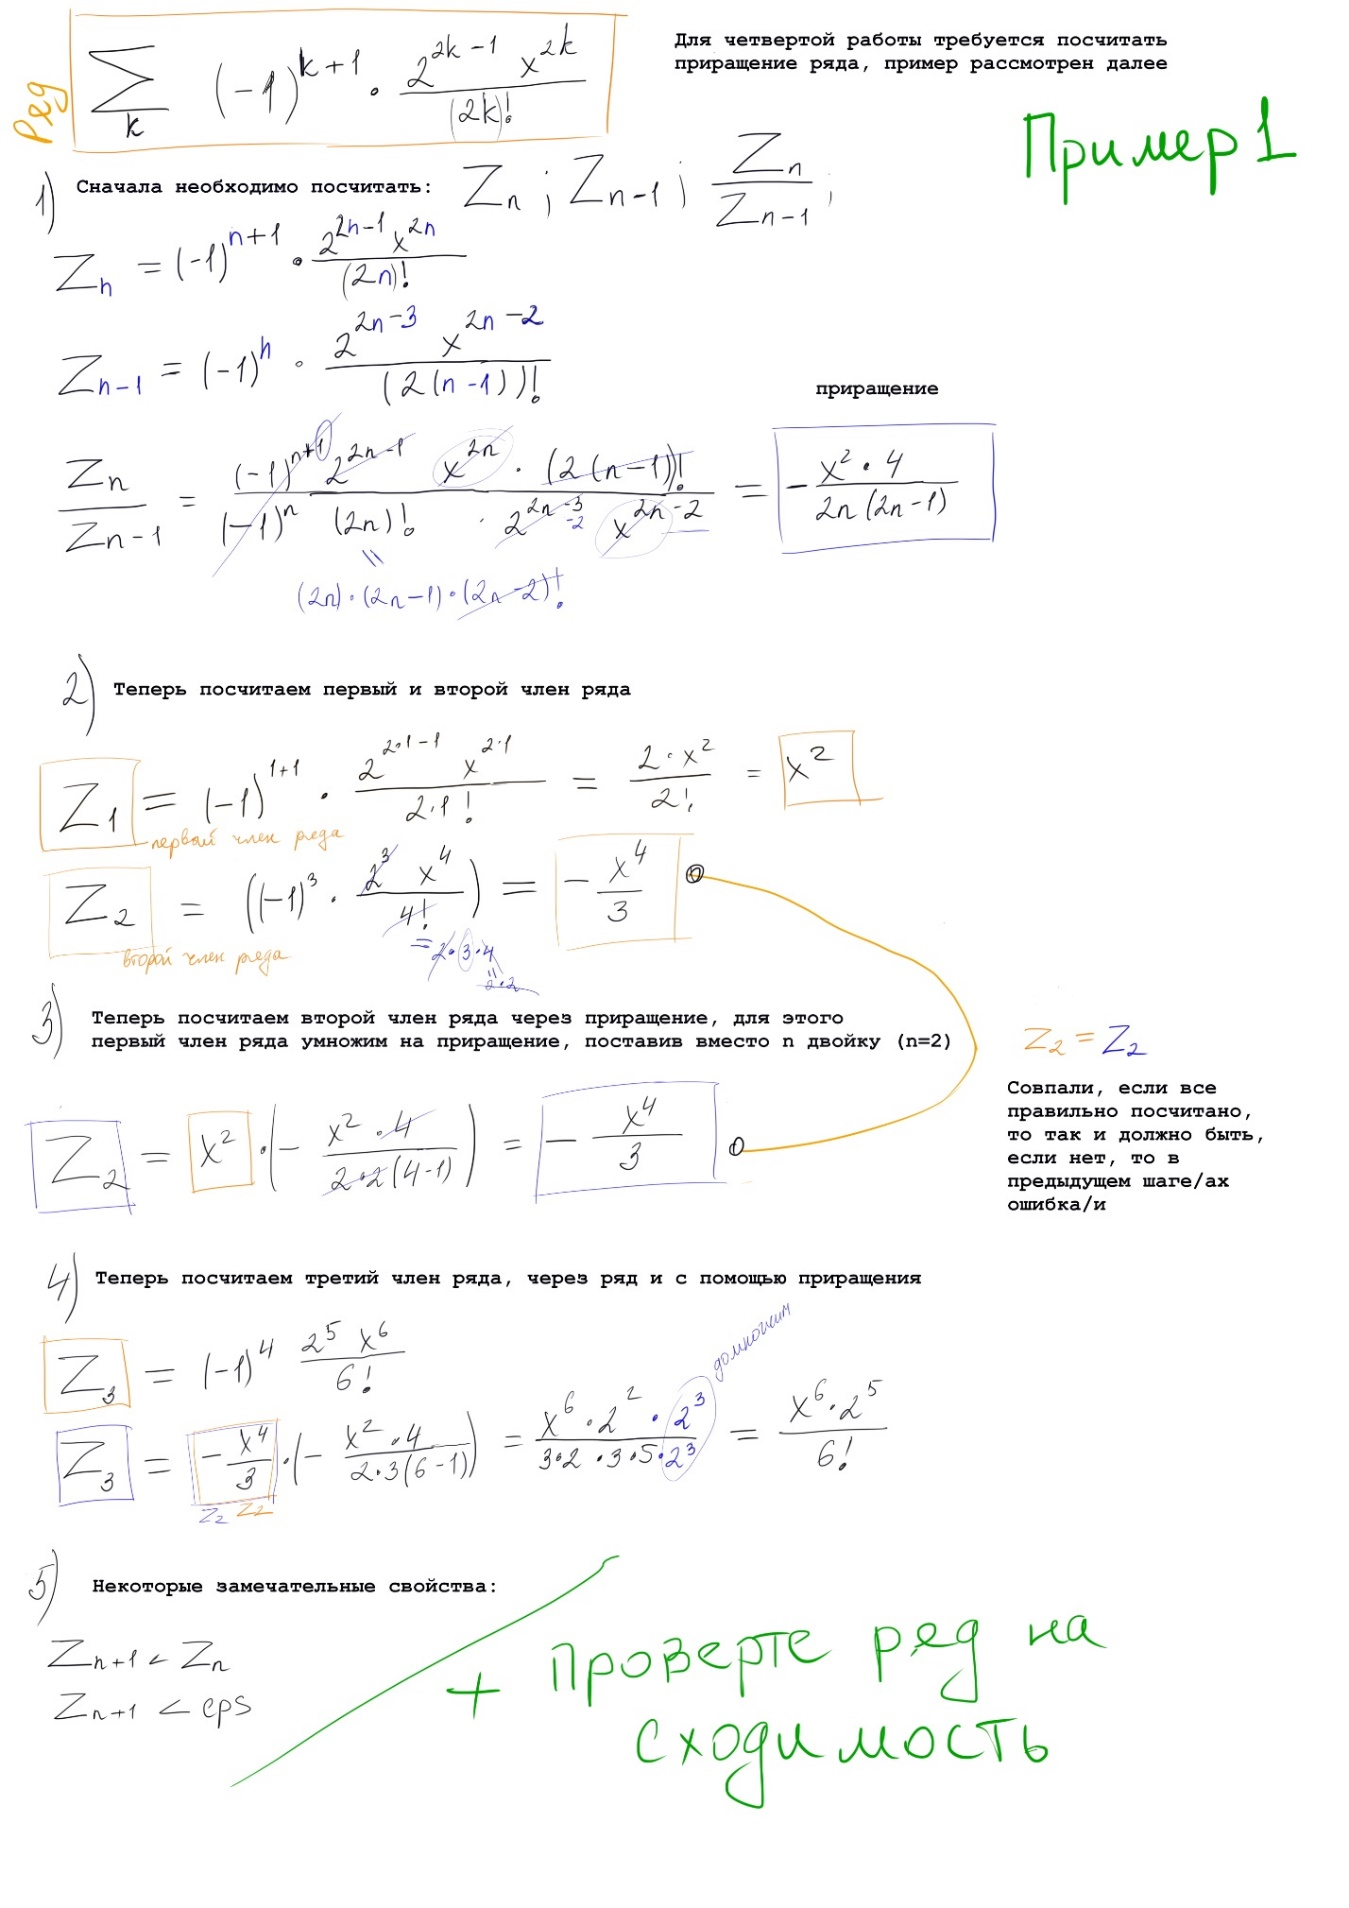 Ряд
\sum_k (-1)^{k+1} \cdot \frac{2^{2k-1} x^{2k}}{(2k)!}
Для четвертой работы требуется посчитать
приращение ряда, пример рассмотрен далее
Пример 1
1) Сначала необходимо посчитать: Z_n ; Z_{n-1} ; \frac{Z_n}{Z_{n-1}} ;
Z_n = (-1)^{n+1} \cdot \frac{2^{2n-1} x^{2n}}{(2n)!}
Z_{n-1} = (-1)^n \cdot \frac{2^{2n-3} x^{2n-2}}{(2(n-1))!}
приращение
\frac{Z_n}{Z_{n-1}} = \frac{(-1)^{n+1} 2^{2n-1} x^{2n} \cdot (2(n-1))!}{(-1)^n (2n)! \cdot 2^{2n-3} x^{2n-2}} = -\frac{x^2 \cdot 4}{2n(2n-1)}
-2
=
(2n)·(2n-1)·(2n-2)!
2) Теперь посчитаем первый и второй член ряда
Z_1 = (-1)^{1+1} \cdot \frac{2^{2·1-1} x^{2·1}}{2·1!} = \frac{2·x^2}{2!} = x^2
первый член ряда
Z_2 = ((-1)^3 \cdot \frac{2^3 x^4}{4!}) = -\frac{x^4}{3}
=2·3·4
второй член ряда
=
2·2
3) Теперь посчитаем второй член ряда через приращение, для этого
первый член ряда умножим на приращение, поставив вместо n двойку (n=2)
Z_2 = Z_2
Совпали, если все
правильно посчитано,
то так и должно быть,
если нет, то в
предыдущем шаге/ах
ошибка/и
Z_2 = x^2 \cdot (-\frac{x^2 · 4}{2·2(4-1)}) = -\frac{x^4}{3}
4) Теперь посчитаем третий член ряда, через ряд и с помощью приращения
Z_3 = (-1)^4 \frac{2^5 x^6}{6!}
домножим
Z_3 = -\frac{x^4}{3} \cdot (-\frac{x^2 · 4}{2·3(6-1)}) = \frac{x^6 · 2^2 · 2^3}{3·2·3·5·2^3} = \frac{x^6 · 2^5}{6!}
Z_2 Z_2
5) Некоторые замечательные свойства:
Z_{n+1} < Z_n
Z_{n+1} < eps
+ проверте ряд на
сходимость